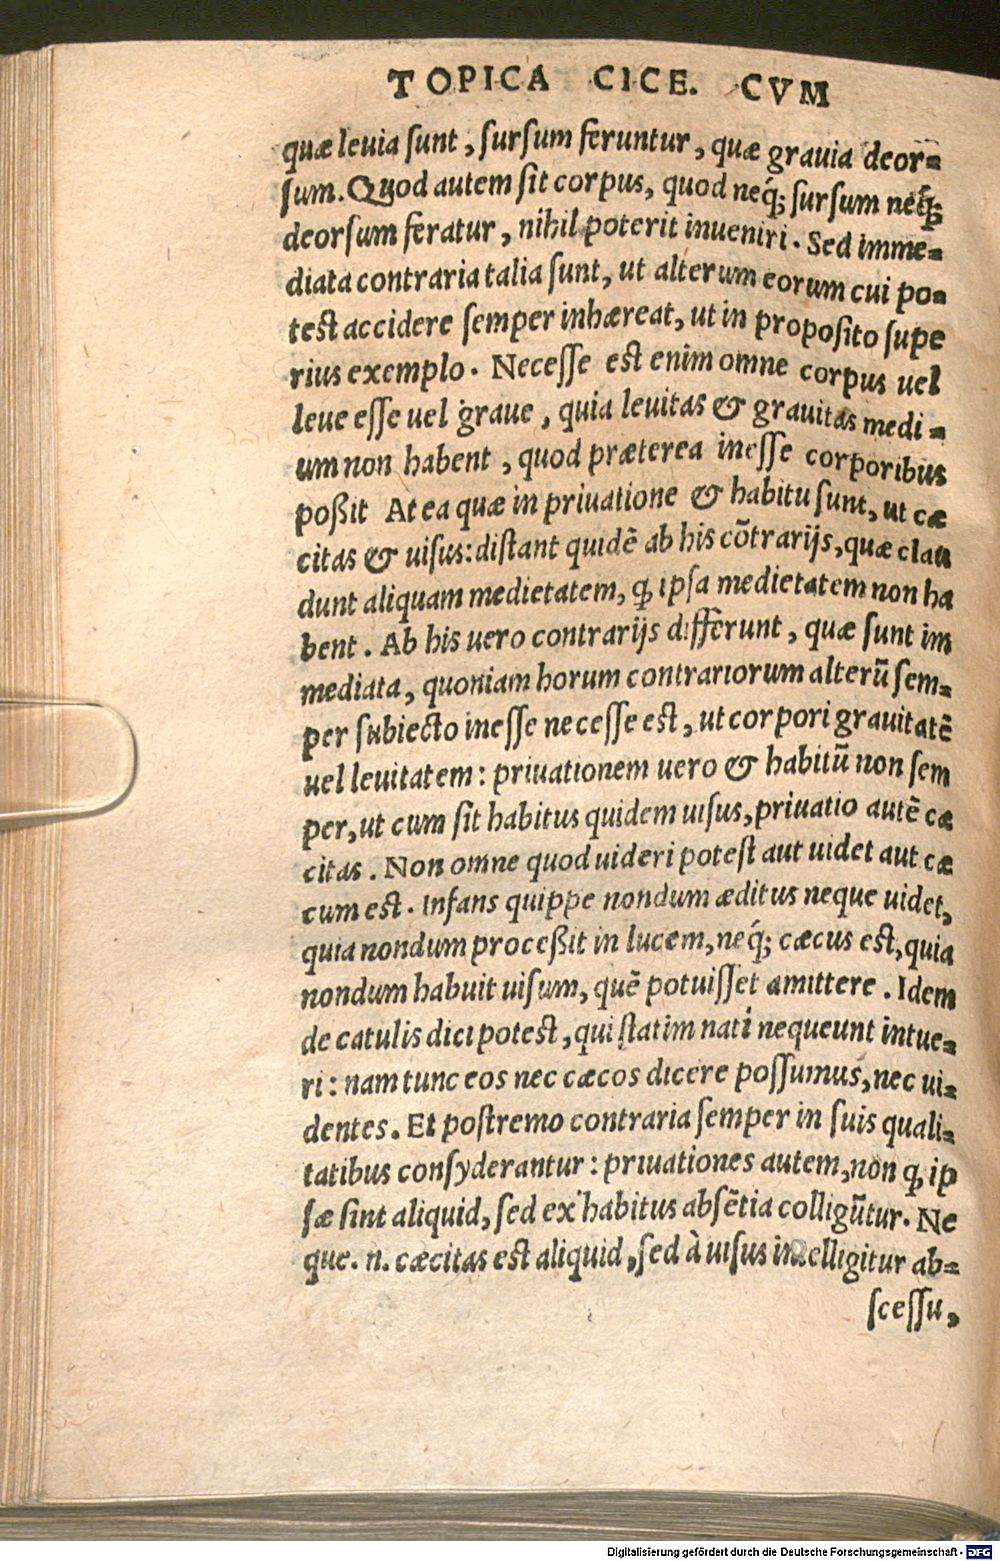 TOPICA CICE. CVM
quæ leuia ſunt, ſurſum feruntur, quæ grauia deor-
ſum. Quod autem ſit corpus, quod neq́; ſurſum neq́;
deorſum feratur, nihil poterit inueniri. Sed imme-
diata contraria talia ſunt, ut alterum eorum cui po-
teſt accidere ſemper inhæreat, ut in propoſito ſupe
rius exemplo. Neceſſe eſt enim omne corpus uel
leue eſſe uel graue, quia leuitas & grauitas medi-
um non habent, quod præterea ineſſe corporibus
poßit At ea quæ in priuatione & habitu ſunt, ut cæ
citas & uiſus: diſtant quidẽ ab his cõtrarijs, quæ clau
dunt aliquam medietatem, ꝙ ipſa medietatem non ha
bent. Ab his uero contrarijs differunt, quæ ſunt im
mediata, quoniam horum contrariorum alterũ ſem-
per ſubiecto ineſſe neceſſe eſt, ut corpori grauitatẽ
uel leuitatem: priuationem uero & habitũ non ſem
per, ut cum ſit habitus quidem uiſus, priuatio autẽ cæ
citas. Non omne quod uideri poteſt aut uidet aut cæ
cum eſt. Infans quippe nondum æditus neque uidet,
quia nondum proceßit in lucem, neq́; cæcus eſt, quia
nondum habuit uiſum, quẽ potuiſſet amittere. Idem
de catulis dici poteſt, qui ſtatim nati nequeunt intue-
ri: nam tunc eos nec cæcos dicere poſſumus, nec ui-
dentes. Et poſtremo contraria ſemper in ſuis quali-
tatibus conſyderantur: priuationes autem, non ꝙ ip
ſæ ſint aliquid, ſed ex habitus abſẽtia colligũtur. Ne
que. n. cæcitas eſt aliquid, ſed à uiſus intelligitur ab-
ſceſſu,
Digitalisierung gefördert durch die Deutsche Forschungsgemeinschaft - DFG